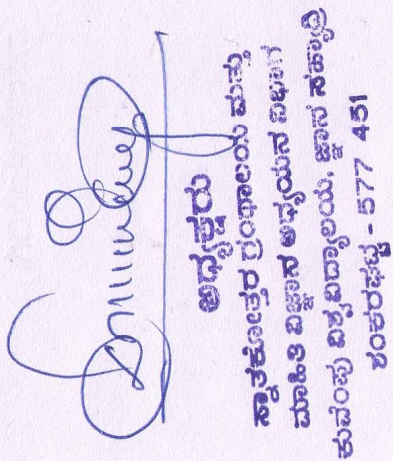 ಅಧ್ಯಕ್ಷರು
ಸ್ನಾತಕೋತ್ತರ ಗ್ರಂಥಾಲಯ ಮತ್ತು
ಮಾಹಿತಿ ವಿಜ್ಞಾನ ಅಧ್ಯಯನ ವಿಭಾಗ
ಕುವೆಂಪು ವಿಶ್ವವಿದ್ಯಾಲಯ, ಜ್ಞಾನ ಸಹ್ಯಾದ್ರಿ
ಶಂಕರಘಟ್ಟ - 577 451